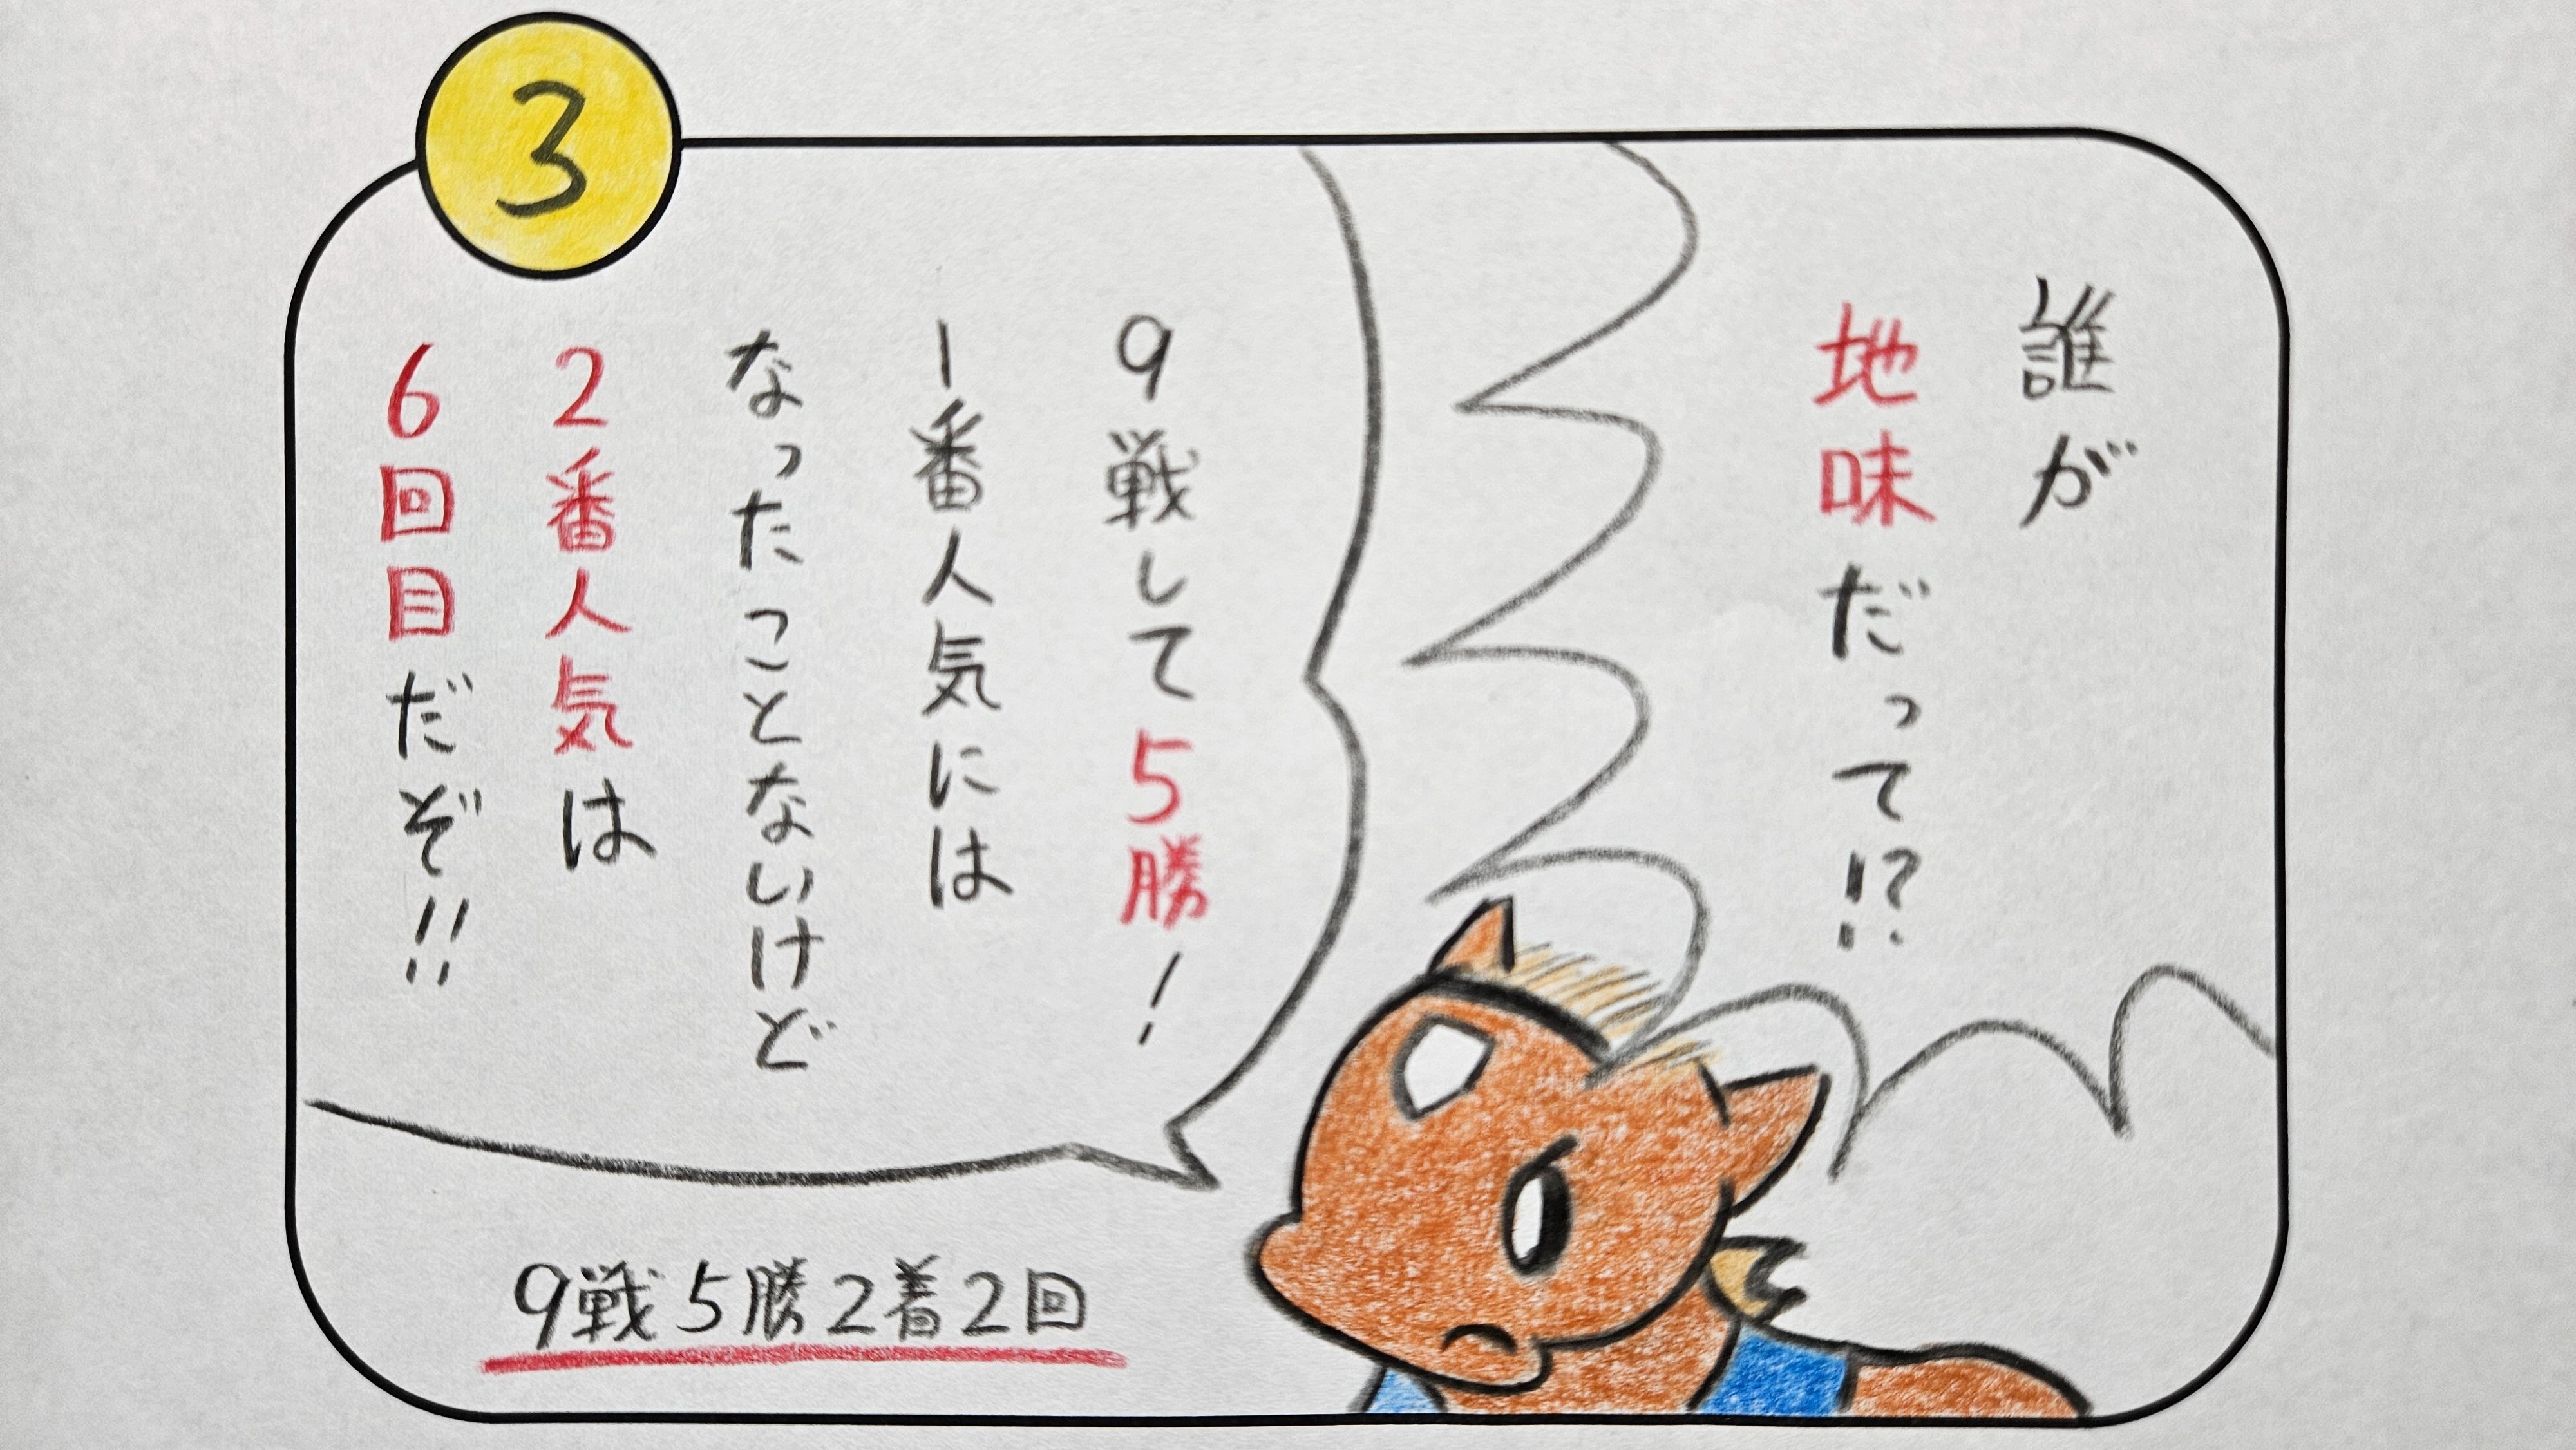 3
誰が
地味だって!?
9戦して5勝!
1番人気には
なったことないけど
2番人気は
6回目だぞ!!
9戦5勝2着2回